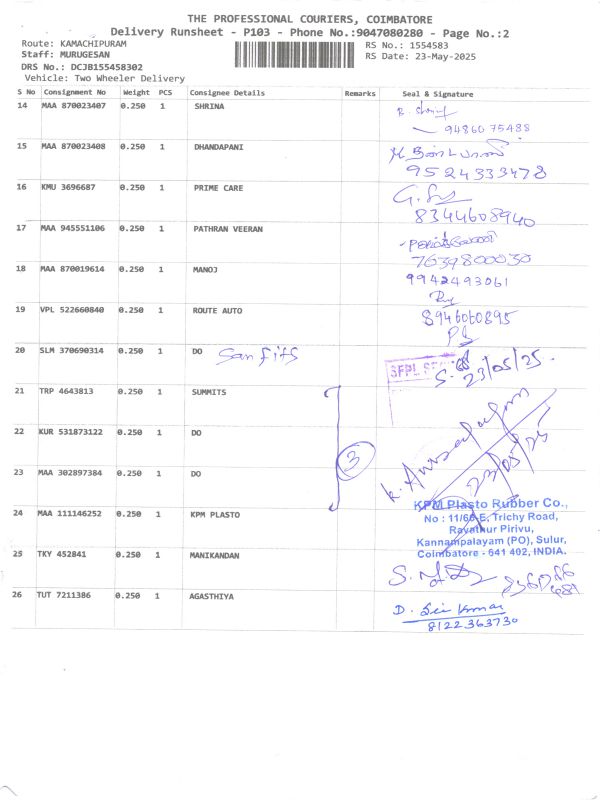 THE PROFESSIONAL COURIERS, COIMBATORE
Delivery Runsheet - P103 - Phone No.:9047080280 - Page No.:2
Route: KAMACHIPURAM RS No.: 1554583
Staff: MURUGESAN RS Date: 23-May-2025
DRS No.: DCJB155458302
Vehicle: Two Wheeler Delivery
S No Consignment No Weight PCS Consignee Details Remarks Seal & Signature
14 MAA 870023407 0.250 1 SHRINA
9486075488
15 MAA 870023408 0.250 1 DHANDAPANI
9524333478
16 KMU 3696687 0.250 1 PRIME CARE
8344608940
17 MAA 945551106 0.250 1 PATHRAN VEERAN
7639800030
18 MAA 870019614 0.250 1 MANOJ 9942493061
19 VPL 522660840 0.250 1 ROUTE AUTO 8946060895
20 SLM 370690314 0.250 1 DO San Fits
23/05/25.
21 TRP 4643813 0.250 1 SUMMITS
22 KUR 531873122 0.250 1 DO
3
23 MAA 302897384 0.250 1 DO
23/05/25
24 MAA 111146252 0.250 1 KPM PLASTO
KPM Plasto Rubber Co.,
No : 11/66-E, Trichy Road,
Rayathur Pirivu,
Kannampalayam (PO), Sulur,
Coimbatore - 641 402, INDIA.
25 TKY 452841 0.250 1 MANIKANDAN
26 TUT 7211386 0.250 1 AGASTHIYA
8122363730